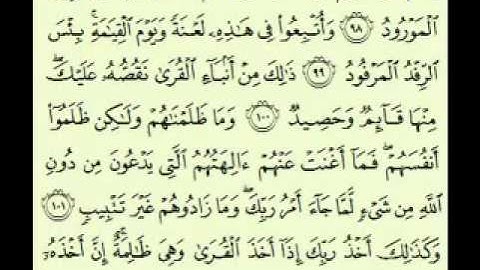 ٱلْمَوْرُودُ ٩٨ وَأُتْبِعُوا۟ فِى هَٰذِهِۦ لَعْنَةً وَيَوْمَ ٱلْقِيَٰمَةِ ۚ بِئْسَ
ٱلرِّفْدُ ٱلْمَرْفُودُ ٩٩ ذَٰلِكَ مِنْ أَنۢبَآءِ ٱلْقُرَىٰ نَقُصُّهُۥ عَلَيْكَ ۖ
مِنْهَا قَآئِمٌ وَحَصِيدٌ ١٠٠ وَمَا ظَلَمْنَٰهُمْ وَلَٰكِن ظَلَمُوٓا۟
أَنفُسَهُمْ ۖ فَمَآ أَغْنَتْ عَنْهُمْ ءَالِهَتُهُمُ ٱلَّتِى يَدْعُونَ مِن دُونِ
ٱللَّهِ مِن شَىْءٍ لَّمَّا جَآءَ أَمْرُ رَبِّكَ ۖ وَمَا زَادُوهُمْ غَيْرَ تَتْبِيبٍ ١٠١
وَكَذَٰلِكَ أَخْذُ رَبِّكَ إِذَآ أَخَذَ ٱلْقُرَىٰ وَهِىَ ظَٰلِمَةٌ ۚ إِنَّ أَخْذَهُۥٓ